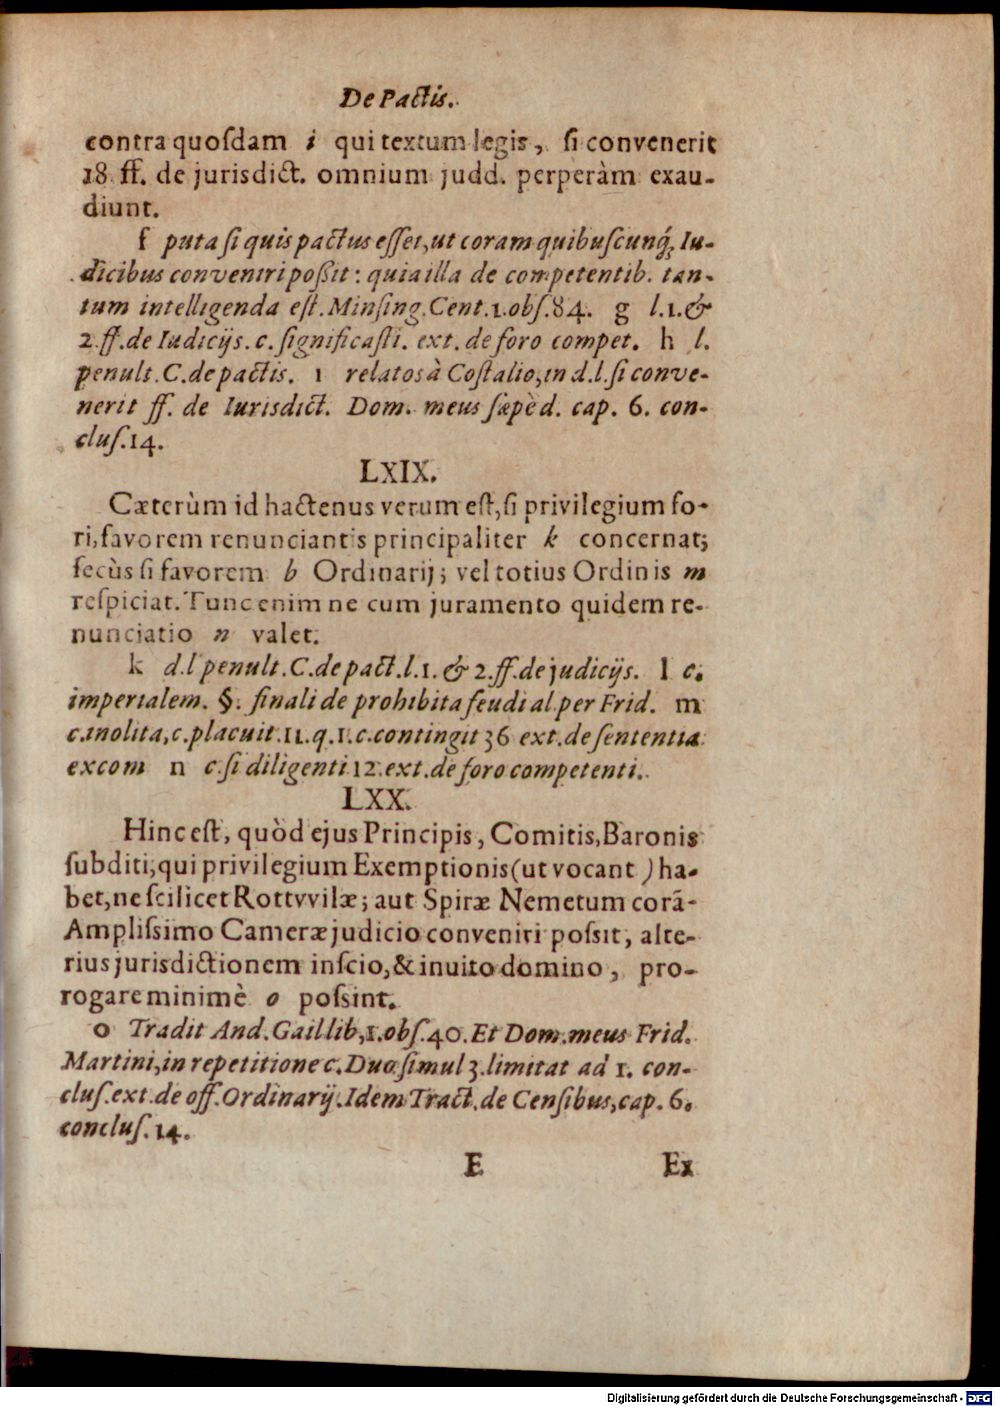 De Pactis.
contra quosdam i qui textum legis, si convenerit
18 ff. de jurisdict. omnium judd. perperàm exau-
diunt.
f puta si quis pactus esset, ut coram quibuscunq́; Iu-
dicibus conveniri poßit: quia illa de competentib. tan-
tum intelligenda est. Minsing. Cent. 1. obs. 84. g l. 1. &
2. ff. de Iudicijs. c. significasti. ext. de foro compet. h l.
penult. C. de pactis. i relatos à Costalio, in d. l. si conve-
nerit ff. de Iurisdict. Dom. meus sæpè d. cap. 6. con-
clus. 14.
LXIX.
Cæterùm id hactenus verum est, si privilegium fo-
ri, favorem renunciantis principaliter k concernat;
secùs si favorem b Ordinarij; vel totius Ordinis m
respiciat. Tunc enim ne cum juramento quidem re-
nunciatio n valet.
k d. l penult. C. de pact. l. 1. & 2. ff. de judicijs. l c.
imperialem. §. finali de prohibita feudi al. per Frid. m
c. inolita, c. placuit. 11. q. 1. c. contingit 36 ext. de sententia
excom n c. si diligenti 12. ext. de foro competenti.
LXX.
Hinc est, quòd ejus Principis, Comitis, Baronis
subditi, qui privilegium Exemptionis (ut vocant) ha-
bet, ne scilicet Rottvvilæ; aut Spiræ Nemetum corā-
Amplissimo Cameræ judicio conveniri possit, alte-
rius jurisdictionem inscio, & inuito domino, pro-
rogare minimè o possint.
o Tradit And. Gail lib, 1. obs. 40. Et Dom. meus Frid.
Martini, in repetitione c. Duo simul 3. limitat ad 1. con-
clus. ext. de off. Ordinarij. Idem Tract. de Censibus, cap. 6.
conclus. 14.
E Ex
Digitalisierung gefördert durch die Deutsche Forschungsgemeinschaft - DFG